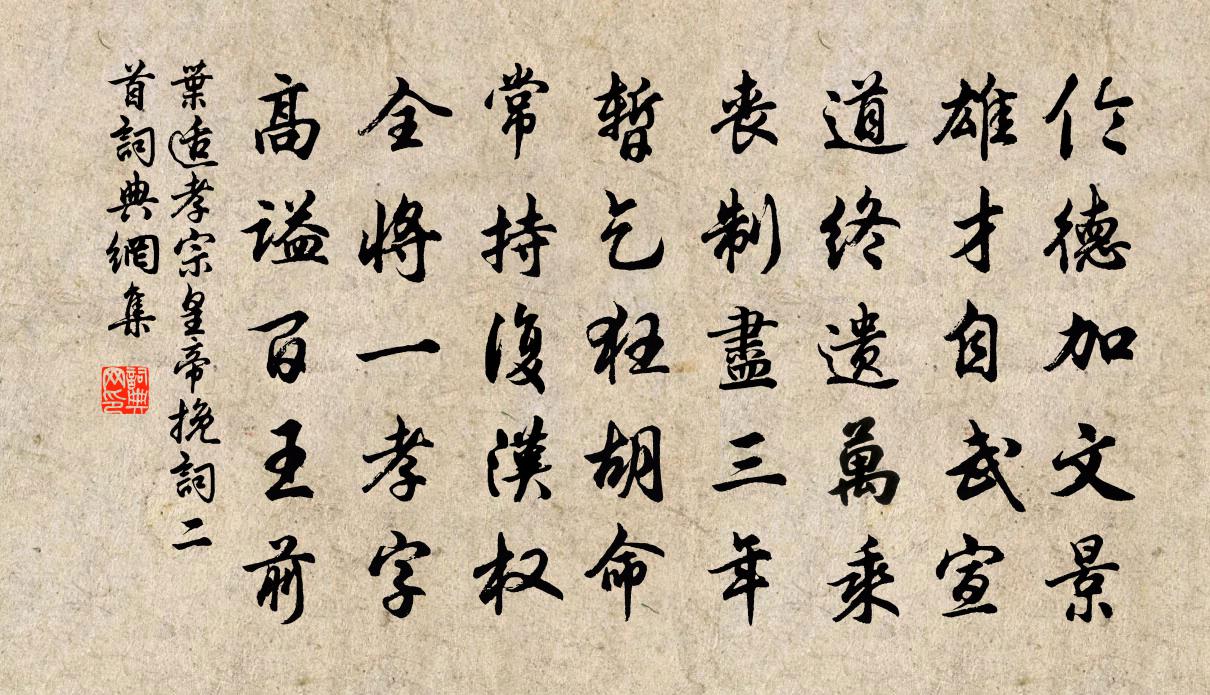 俭德加文景
雄才自武宣
道終遺萬乘
喪制盡三年
暫乞狂胡命
常持復漢权
全將一孝字
高謚百王前
葉适孝宗皇帝挽詞二
首詞典網集
詞典网印